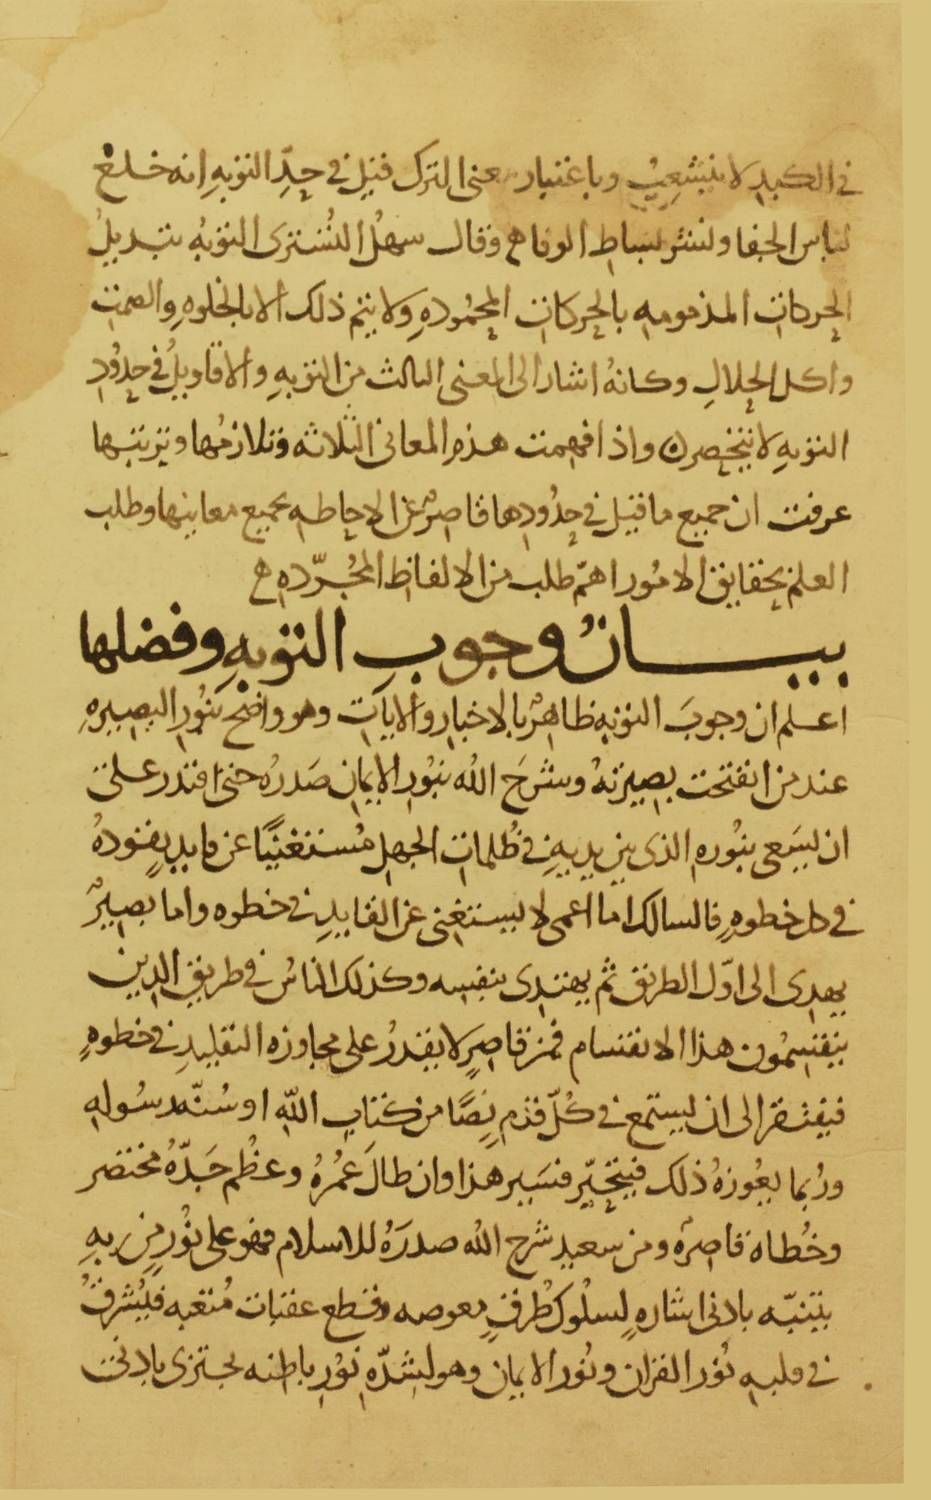 في الكبد لا ينشعب وباعتبار معنى الترك قيل في حدّ التوبه انه خلع
لباس الجفا ونشر بساط الوفا ه وقال سهلُ التُستري التوبهُ تبديلُ
الحركات المذمومه بالحركات المحمُودهِ ولا يتم ذلك الا بالخلوهِ والصمت
واكل الحلالِ وكانهُ اشار الى المعنى الثالث من التوبهِ والاقاويلُ في حدُودِ
التوبهِ لا تنحصر ه واذا فهمت هذه المعاني الثلاثه وتلازمُها وترتيبها
عرفت ان جميع ما قيل في حدُودِها قاصرٌ عن الاحاطه بجميع معانيها وطلب
العلم بحقايق الامُور اهمّ طلب من الالفاظ المُجرّده ه
بيــان وجوبِ التوبهِ وفضلها
اعلم ان وجوبَ التوبه ظاهرٌ بالاخبار والايَات وهو واضح بنُور البصيرهِ
عند من انفتحت بصيرتهُ وشرحَ الله بنُور الايمان صَدرُه حتى اقتدر على
ان يسَعى بنُوره الذي بين يديهِ في ظُلمات الجهل مُستغنيًا عن قايدٍ يقودهُ
في كل خطوهٍ فالسالك اما اعمى لا يستغني عن القايدِ في خطوه واما بصيرٌ
يهدى الى اوّل الطريق ثم يهتدى بنفسه وكذلك الناسُ في طريق الدين
ينقسمُون هذا الانقسام فمن قاصرٍ لا يقدرُ على مجاوزه التقليدِ في خطوهٍ
فيفتقر الى ان يستمع في كُلّ قدمٍ نصًا من كتاب اللّه او سُنّه رسُوله
ورُبما يعُوزهُ ذلك فيتحيّر فسَير هذا وان طالَ عمُرهُ وعظُم جَدّهُ مختصر
وخُطاه قاصرٌه ومن سعيدٍ شرح اللهُ صدرَهُ للاسلام فهو على نُورٍ من ربهِ
يتنبّه بادنى اشارهٍ لسلُوك طُرقٍ معوصه وقطع عقبات مُتعبه فيُشرقُ
في قلبه نُور القران ونُور الايمان وهو لشدّه نوُر باطنه يجتزى بادنى